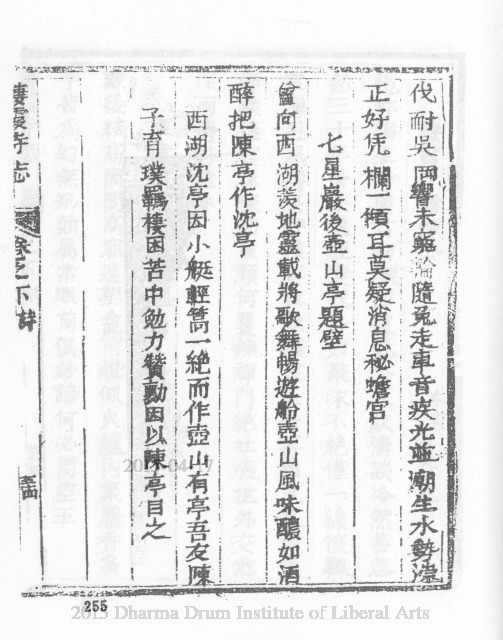 伐耐吳岡響未窮輪隨兔走車音疾光並潮生水勢
正好凭欄一傾耳莫疑消息秘蟾宮
七星巖後壺山亭題壁
曾向西湖羨地靈載將歌舞暢遊舲壺山風味醲如酒
醉把陳亭作沈亭
西湖沈亭因小艇輕篙一絕而作壺山有亭吾友陳
子育璞羈棲困苦中勉力贊勷因以陳亭目之
棲霞寺志
卷之下
255
2013 Dharma Drum Institute of Liberal Arts